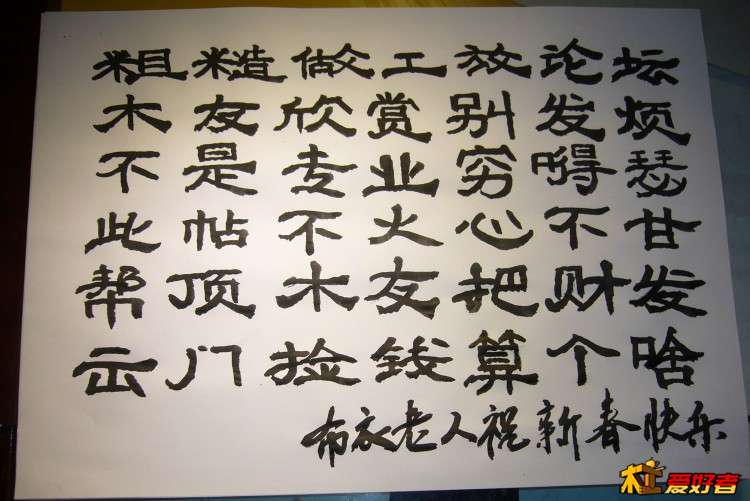 粗糙做工放论坛
木友欣赏别发烦
不是专业穷嘚瑟
此帖不火心不甘
帮顶木友把财发
出门捡钱算个啥
布衣老人祝新春快乐
木工爱好者